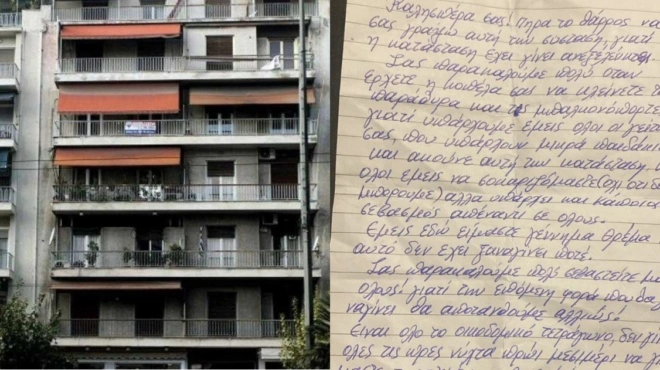 Καλησπέρα σας, πήρα το θάρρος να
σας γράψω αυτή την σύσταση, γιατί
η κατάσταση έχει γίνει ανεξέλεγκτη.
Σας παρακαλούμε πολύ όταν
έρχετε η κοπέλα σας να κλείνετε τα
παράθυρα και τις μπαλκονόπορτες
γιατί υπάρχουμε εμείς όλοι οι γείτο
σας, που υπάρχουν μικρά παιδάκια
και ακούνε αυτή την κατάσταση.
όλοι εμείς να σοκαριζόμαστε (όχι ότι δε
μπορούμε) αλλά υπάρχει και κάποιος
σεβασμός απέναντι σε όλους.
Εμείς εδώ είμαστε γέννημα θρέμα
αυτό δεν έχει ξαναγίνει ποτέ.
Σας παρακαλούμε πολύ σεβαστείτε μα
όλους γιατί την επόμενη φορά που θα
γίνει θα απαιτηθούμε αλλιώς!
Είναι όλο το οικοδομικό τετράγωνο, δεν γί
όλες τις ώρες νύχτα πρωί μεσημέρι να